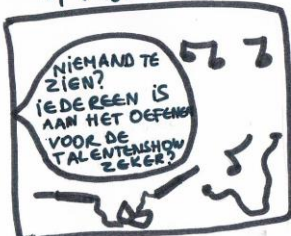 NIEMAND TE
ZIEN?
IEDEREEN IS
AAN HET OEFENEN
VOOR DE
TALENTENSHOW
ZEKER?